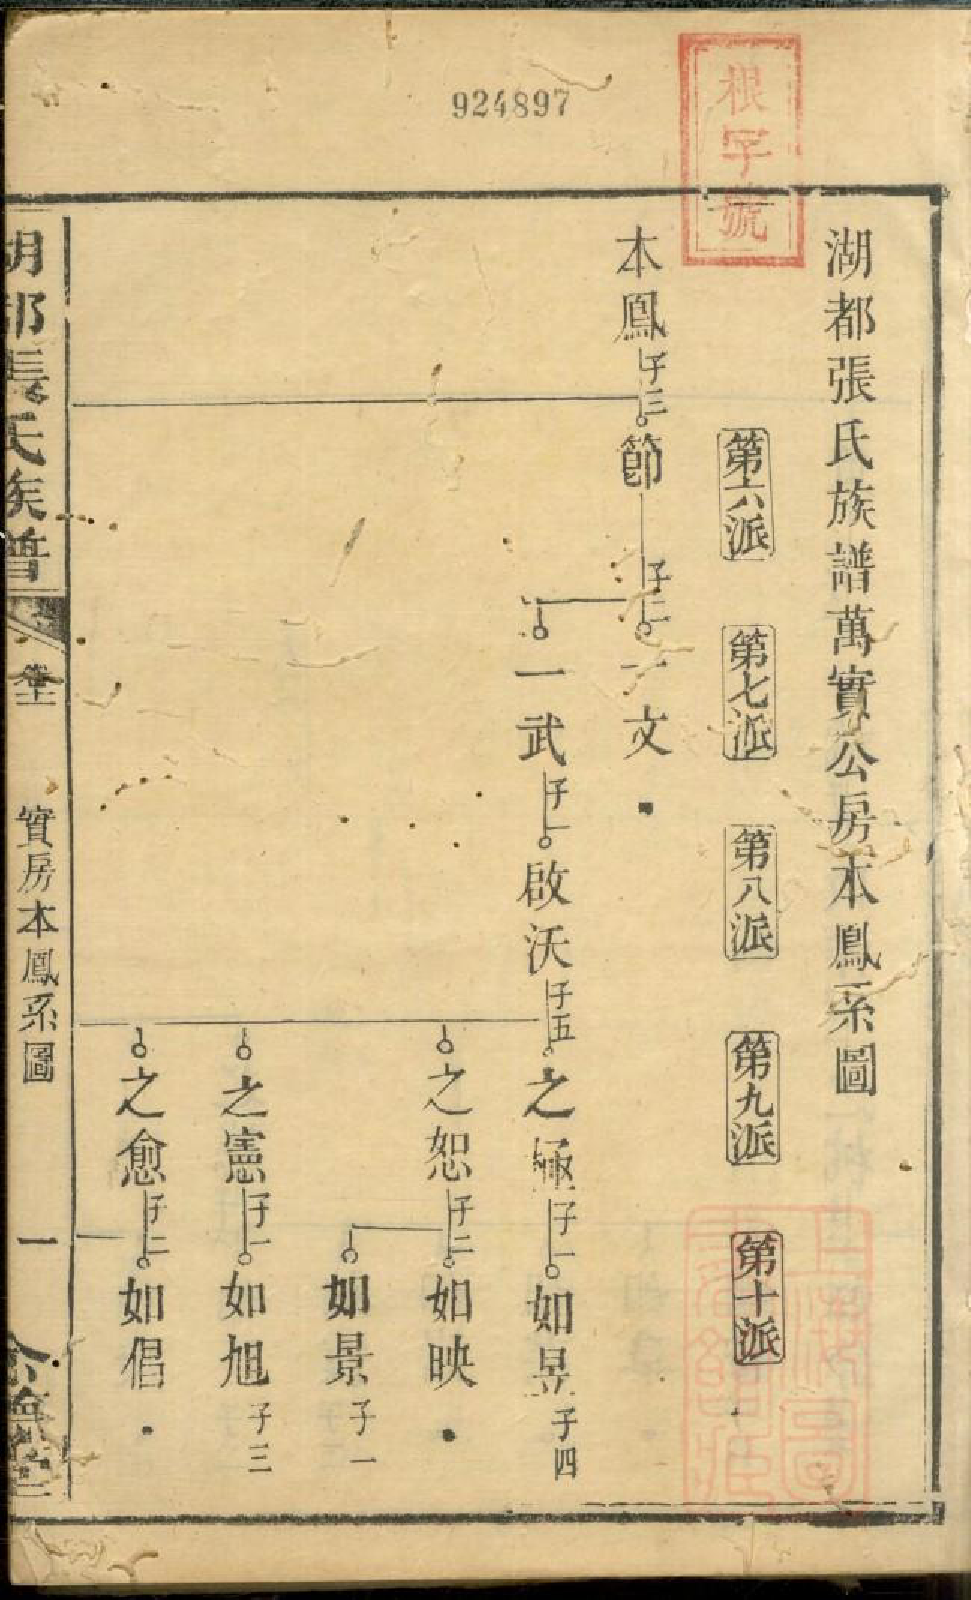 924897
根字號
湖都張氏族譜萬實公房本鳳系圖
第六派
第七派
第八派
第九派
第十派
本鳳
子三
節
子二
一文
一武
子一
啟沃
子五
之極
子一
如昱
子四
之恕
子二
如映
如景
子一
之憲
子一
如旭
子三
之愈
子二
如倡
湖都張氏族譜
卷
實房本鳳系圖
一